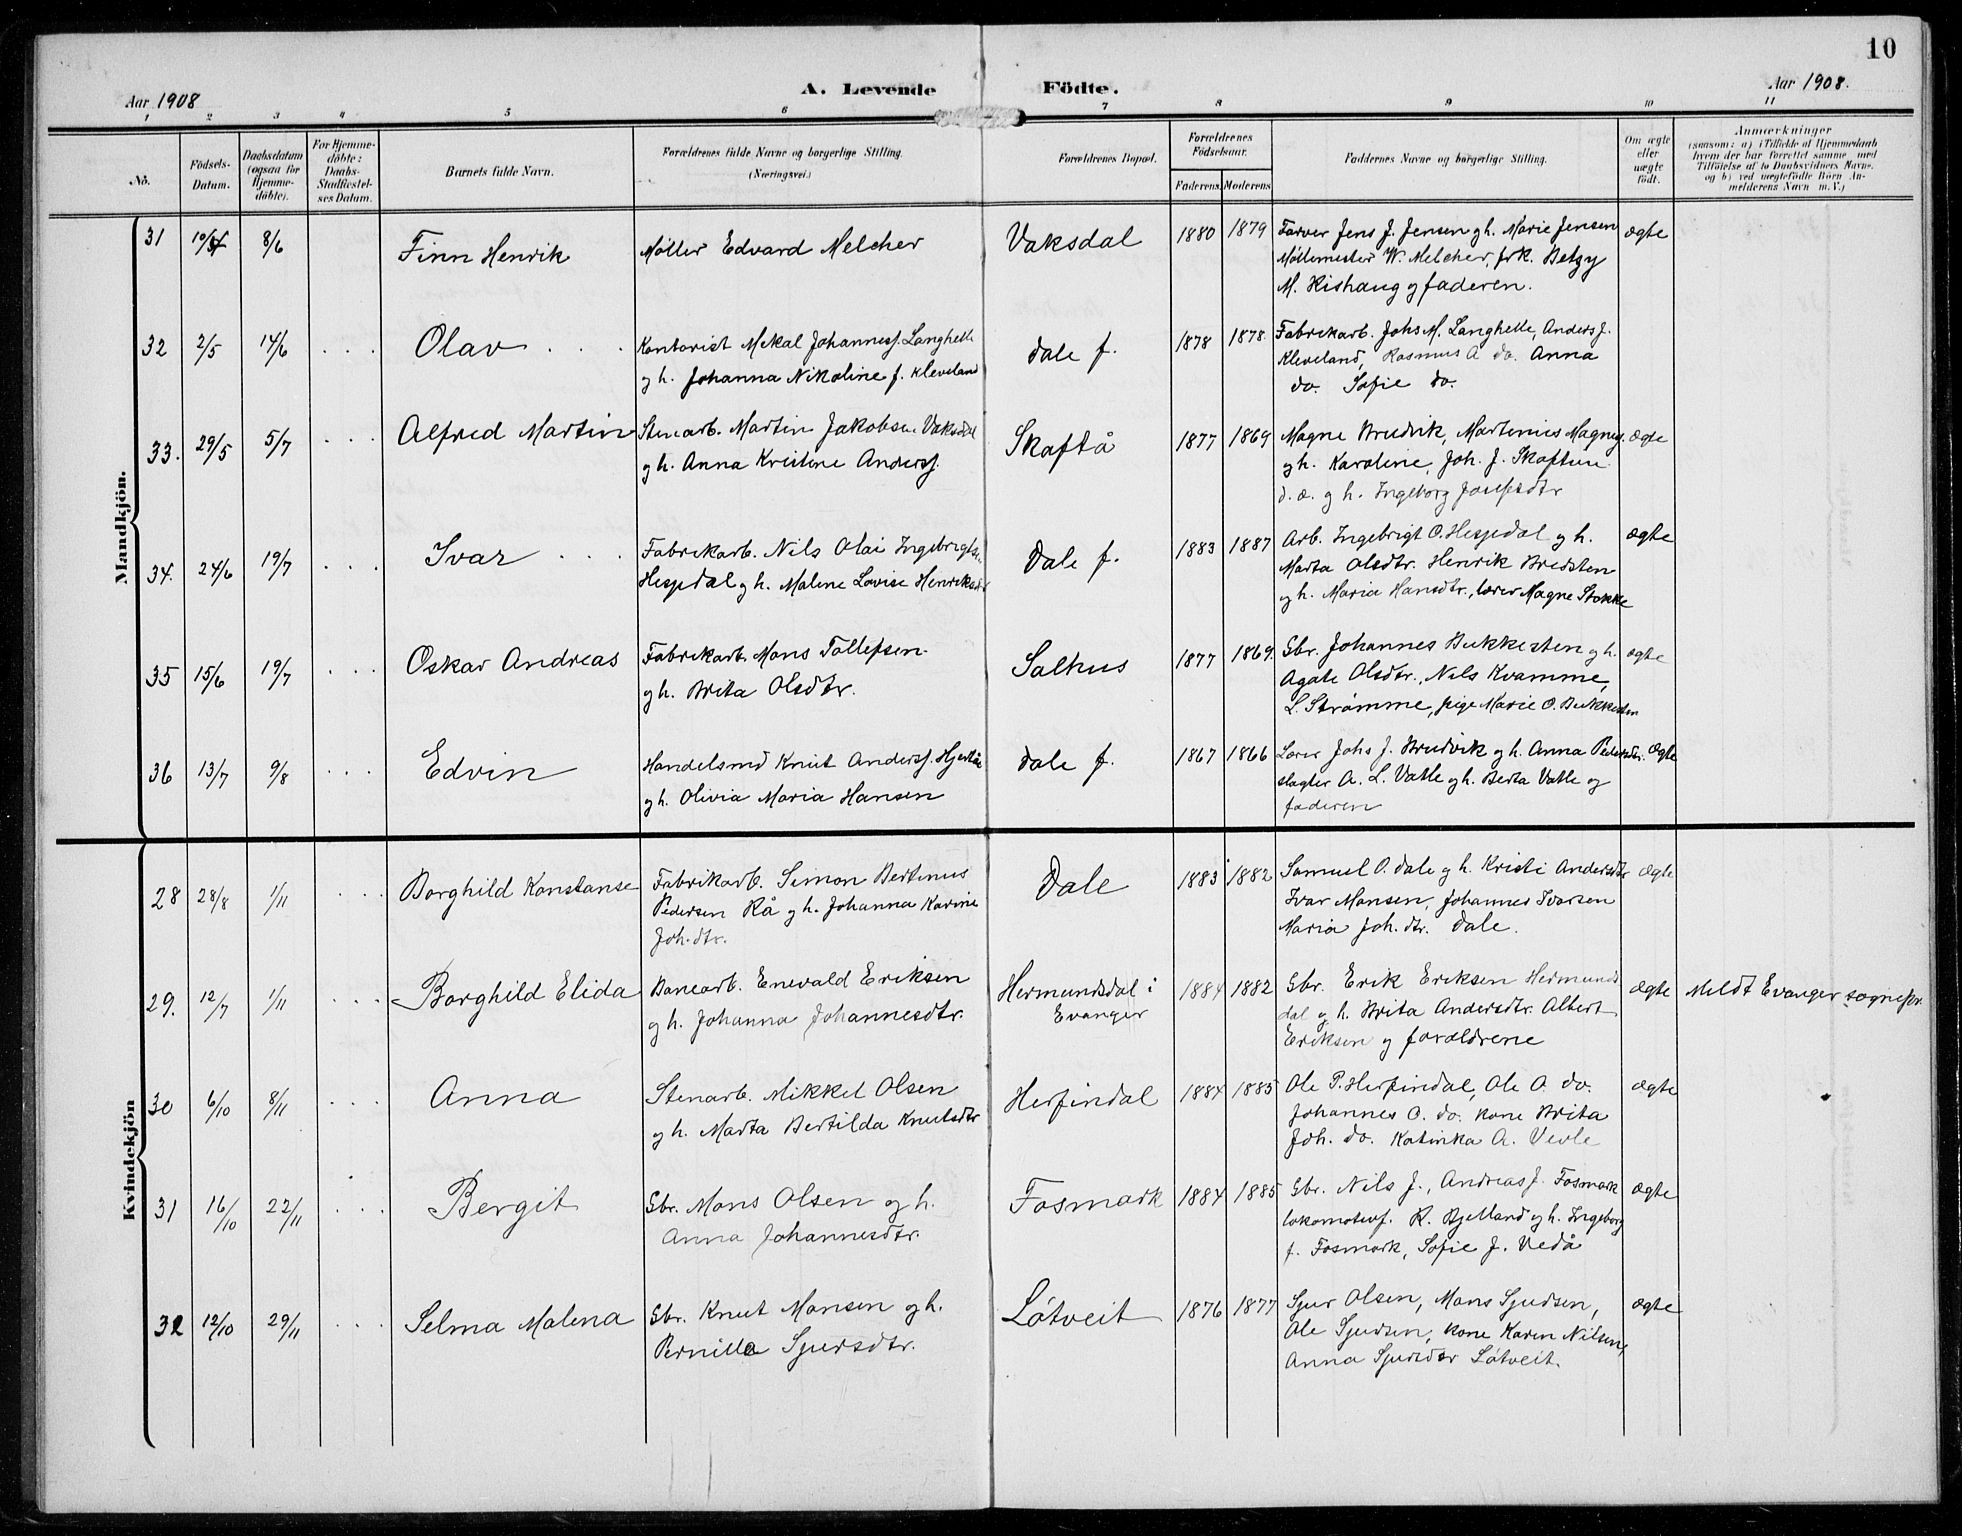 10
Aar 1908
A. Levende Födte.
Aar 1908.
1 2 3 4 5 6 7 8 9 10 11
No.
Födsels-Datum.
Daabsdatum (ogsaa for Hjemme-döbte).
For Hjemme-döbte: Daabs-Stadfæstel-ses Datum.
Barnets fulde Navn.
Forældrenes fulde Navne og borgerlige Stilling. (Næringsvei.)
Forældrenes Bopæl.
Forældrenes Födselsaar.
Faderens. Moderens.
Faddernes Navne og borgerlige Stilling.
Om ægte eller uægte födt.
Anmærkninger
(saasom: a) i Tilfælde af Hjemmedaab hvem der har forrettet samme med Tilföielse af to Daabsvidners Navne. og b) ved uægtefödte Börn Anmelderens Navn m.V.)
Mandkjön.
31 8/6 Finn Henrik Möller Edvard Melcher Vaksdal 1880 1879 Farver Jens J. Jensen gh. Marie Jensen ægte
Möllemester W. Melcher, frk. Betzy
M. Rishaug og faderen.
32 2/5 14/6 . . . Olav . . . Kontorist Mekal Johannesf. Langhelle dale f. 1878 1878. Fabrikarb. Johs M. Langhelle, Anders J.
gh. Johanna Nikoline f. Kleveland Kleveland, Rasmus A do. Anna
do. Sofie do.
33. 29/5 5/7 . . . Alfred Martin Stenarb. Martin Jakobsen Vaksdal Skaftå 1877 1869 Magne Bruvik, Martenius Magnes. ægte
gh. Anna Kristine Andersf. gh. Karoline, Joh. J. Skaftun
d. æ. g h. Ingeborg Josefsdtr
34. 24/6 19/7 . . . Ivar . . . Fabrikarb. Nils Olai Ingebrigts. Dale f. 1883 1887 Arb. Ingebrigt O. Hesjedal g h. ægte
Hesjedal gh. Malene Lovise Henriksd. Marta Olsdtr. Henrik Bredsten
gh. Maria Hansdtr., lærer Magne Stokke
35 15/6 19/7 . . . Oskar Andreas Fabrikarb. Mons Tollefsen Salhus 1877 1869. Gbr. Johannes Bukkesten gh. ægte
gh. Brita Olsdtr. Agate Olsdtr., Nils Kvamme,
L. Strömme, pige Marie O. Bukkesten
36 13/7 9/8 . . . Edvin Handelsmd Knut Andersf. Hjertås dale f. 1867 1866 Lærer Johs J. Bruvik gh. Anna Pedersdtr. Ægte
gh. Olivia Maria Hansen slagter A. L. Vatle gh. Berta Vatle og
faderen
Kvindekjön
28 28/8 1/11 . . . Borghild Konstanse Fabrikarb. Simon Bertinus Dale 1883 1882 Samuel O. Dale gh. Kristi Andersdtr ægte
Pedersen Rå gh. Johanna Karine Ivar Monsen, Johannes Ivarsen
Joh.dtr. Maria Joh.dtr. Dale.
29. 12/7 1/11 . . . Borghild Elida Banearb. Enevald Eriksen Hermundsdal i 1884 1882 Gbr. Erik Eriksen Hermunds ægte Meldt Evanger sognepr.
gh. Johanna Johannesdtr. Evanger dal g h. Brita Andersdtr. Albert
Eriksen og forældrene
30 6/10 8/11 . . . Anna Stenarb. Mikkel Olsen Herfindal 1884 1885 Ole P. Herfindal, Ole O. do. ægte
gh. Marta Bertilda Knutsdtr Johannes O. do. kone Brita
Joh. do. Katinka A. Vevle
31 16/10 22/11 . . . Bergit Gbr. Mons Olsen og h. Fosmark 1884 1885 Gbr. Nils J., Andreas J. Fosmark ægte
Anna Johannesdtr. lokomotivf. R. Bjelland gh. Ingeborg
f. Fosmark, Sofie J. Vedå
32 12/10 29/11 . . . Selma Malena Gbr. Knut Monsen gh. Lötveit 1876 1877 Sjur Olsen, Mons Sjursen, ægte
Pernille Sjursdtr. Ole Sjursen, kone Karen Nilsen,
Anna Sjursdtr Lötveit